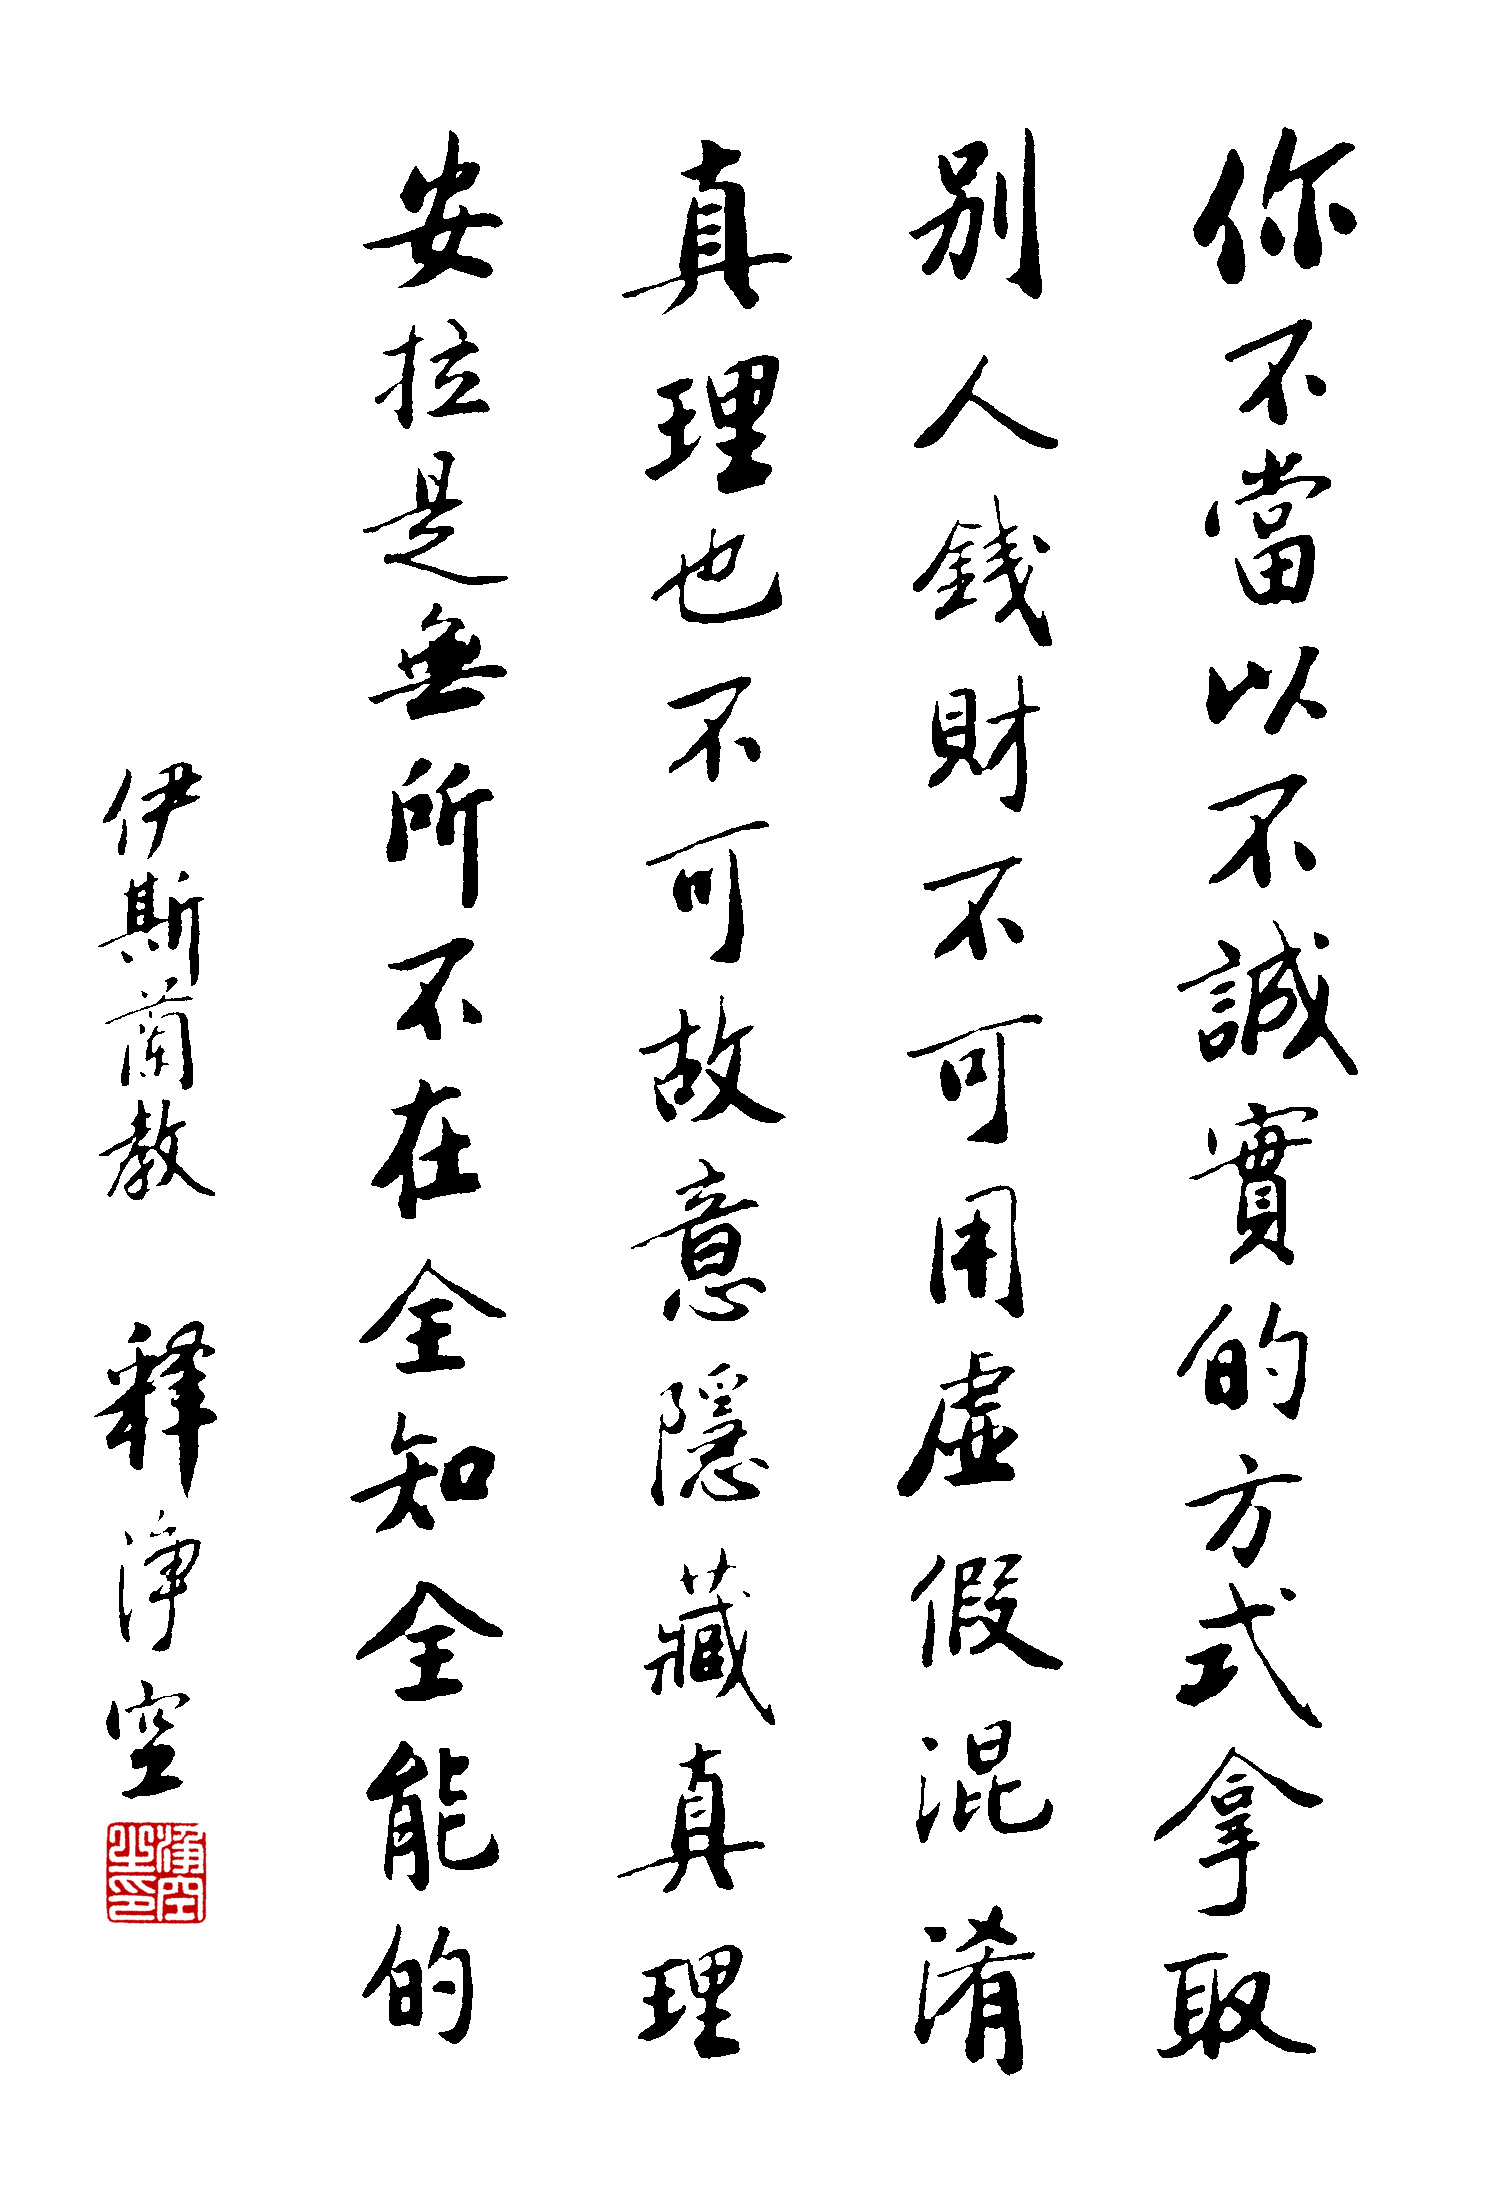 你不當以不誠實的方式拿取
别人錢財不可用虛假混淆
真理也不可故意隱藏真理
安拉是無所不在全知全能的
伊斯蘭教 释淨空
淨空之印